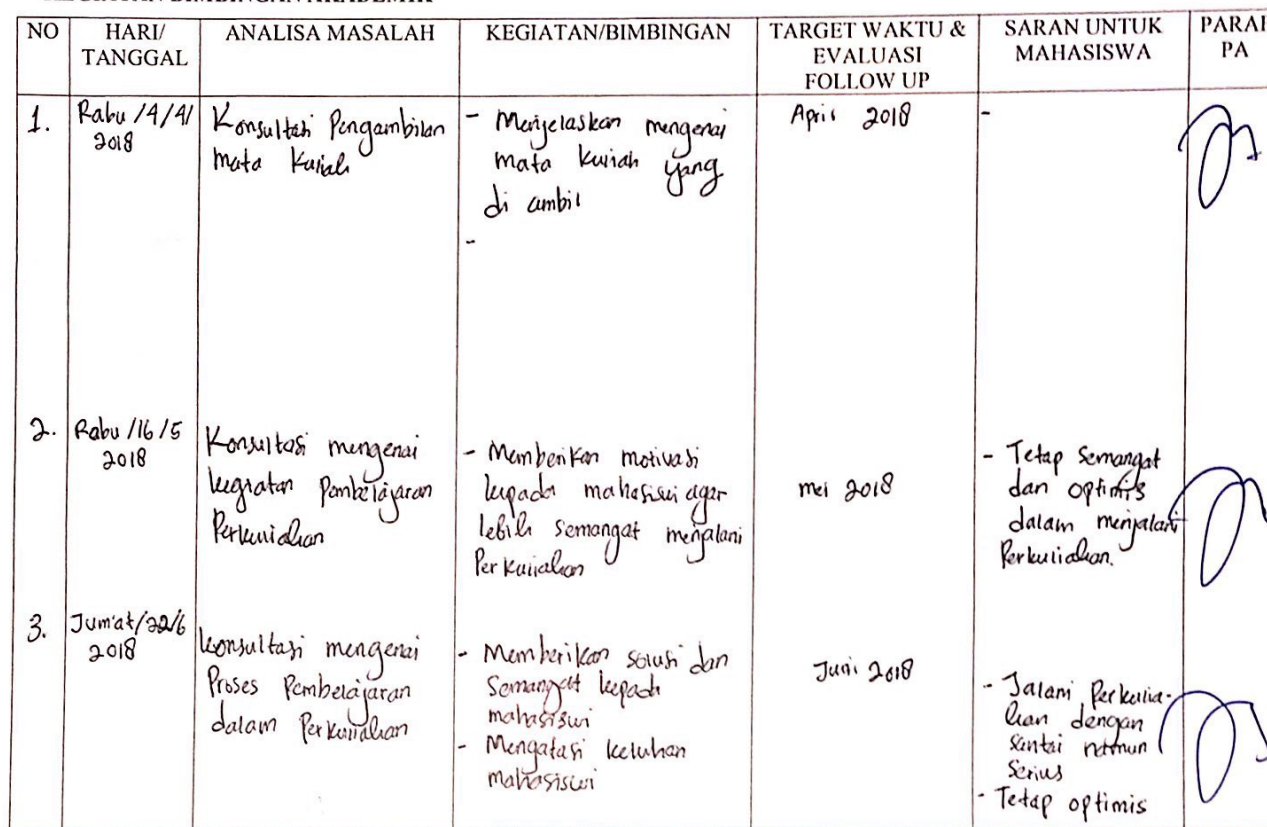 NO
HARI/
TANGGAL
ANALISA MASALAH
KEGIATAN/BIMBINGAN
TARGET WAKTU &
EVALUASI
FOLLOW UP
SARAN UNTUK
MAHASISWA
PARAF
PA
1.
Rabu /4/4/
2018
Konsultasi Pengambilan
mata Kuliah
- Menjelaskan mengenai
mata kuliah yang
di ambil
-
April 2018
-
2.
Rabu /16/5
2018
Konsultasi mengenai
kegiatan Pembelajaran
Perkuliahan
- Memberikan motivasi
kepada mahasiswi agar
lebih semangat menjalani
Perkuliahan
mei 2018
- Tetap Semangat
dan optimis
dalam menjalani
Perkuliahan.
3.
Jum'at/22/6
2018
konsultasi mengenai
Proses Pembelajaran
dalam Perkuliahan
- Memberikan solusi dan
Semangat kepada
mahasiswi
- Mengatasi keluhan
mahasiswi
Juni 2018
- Jalani Perkulia-
han dengan
santai namun
Serius
- Tetap optimis